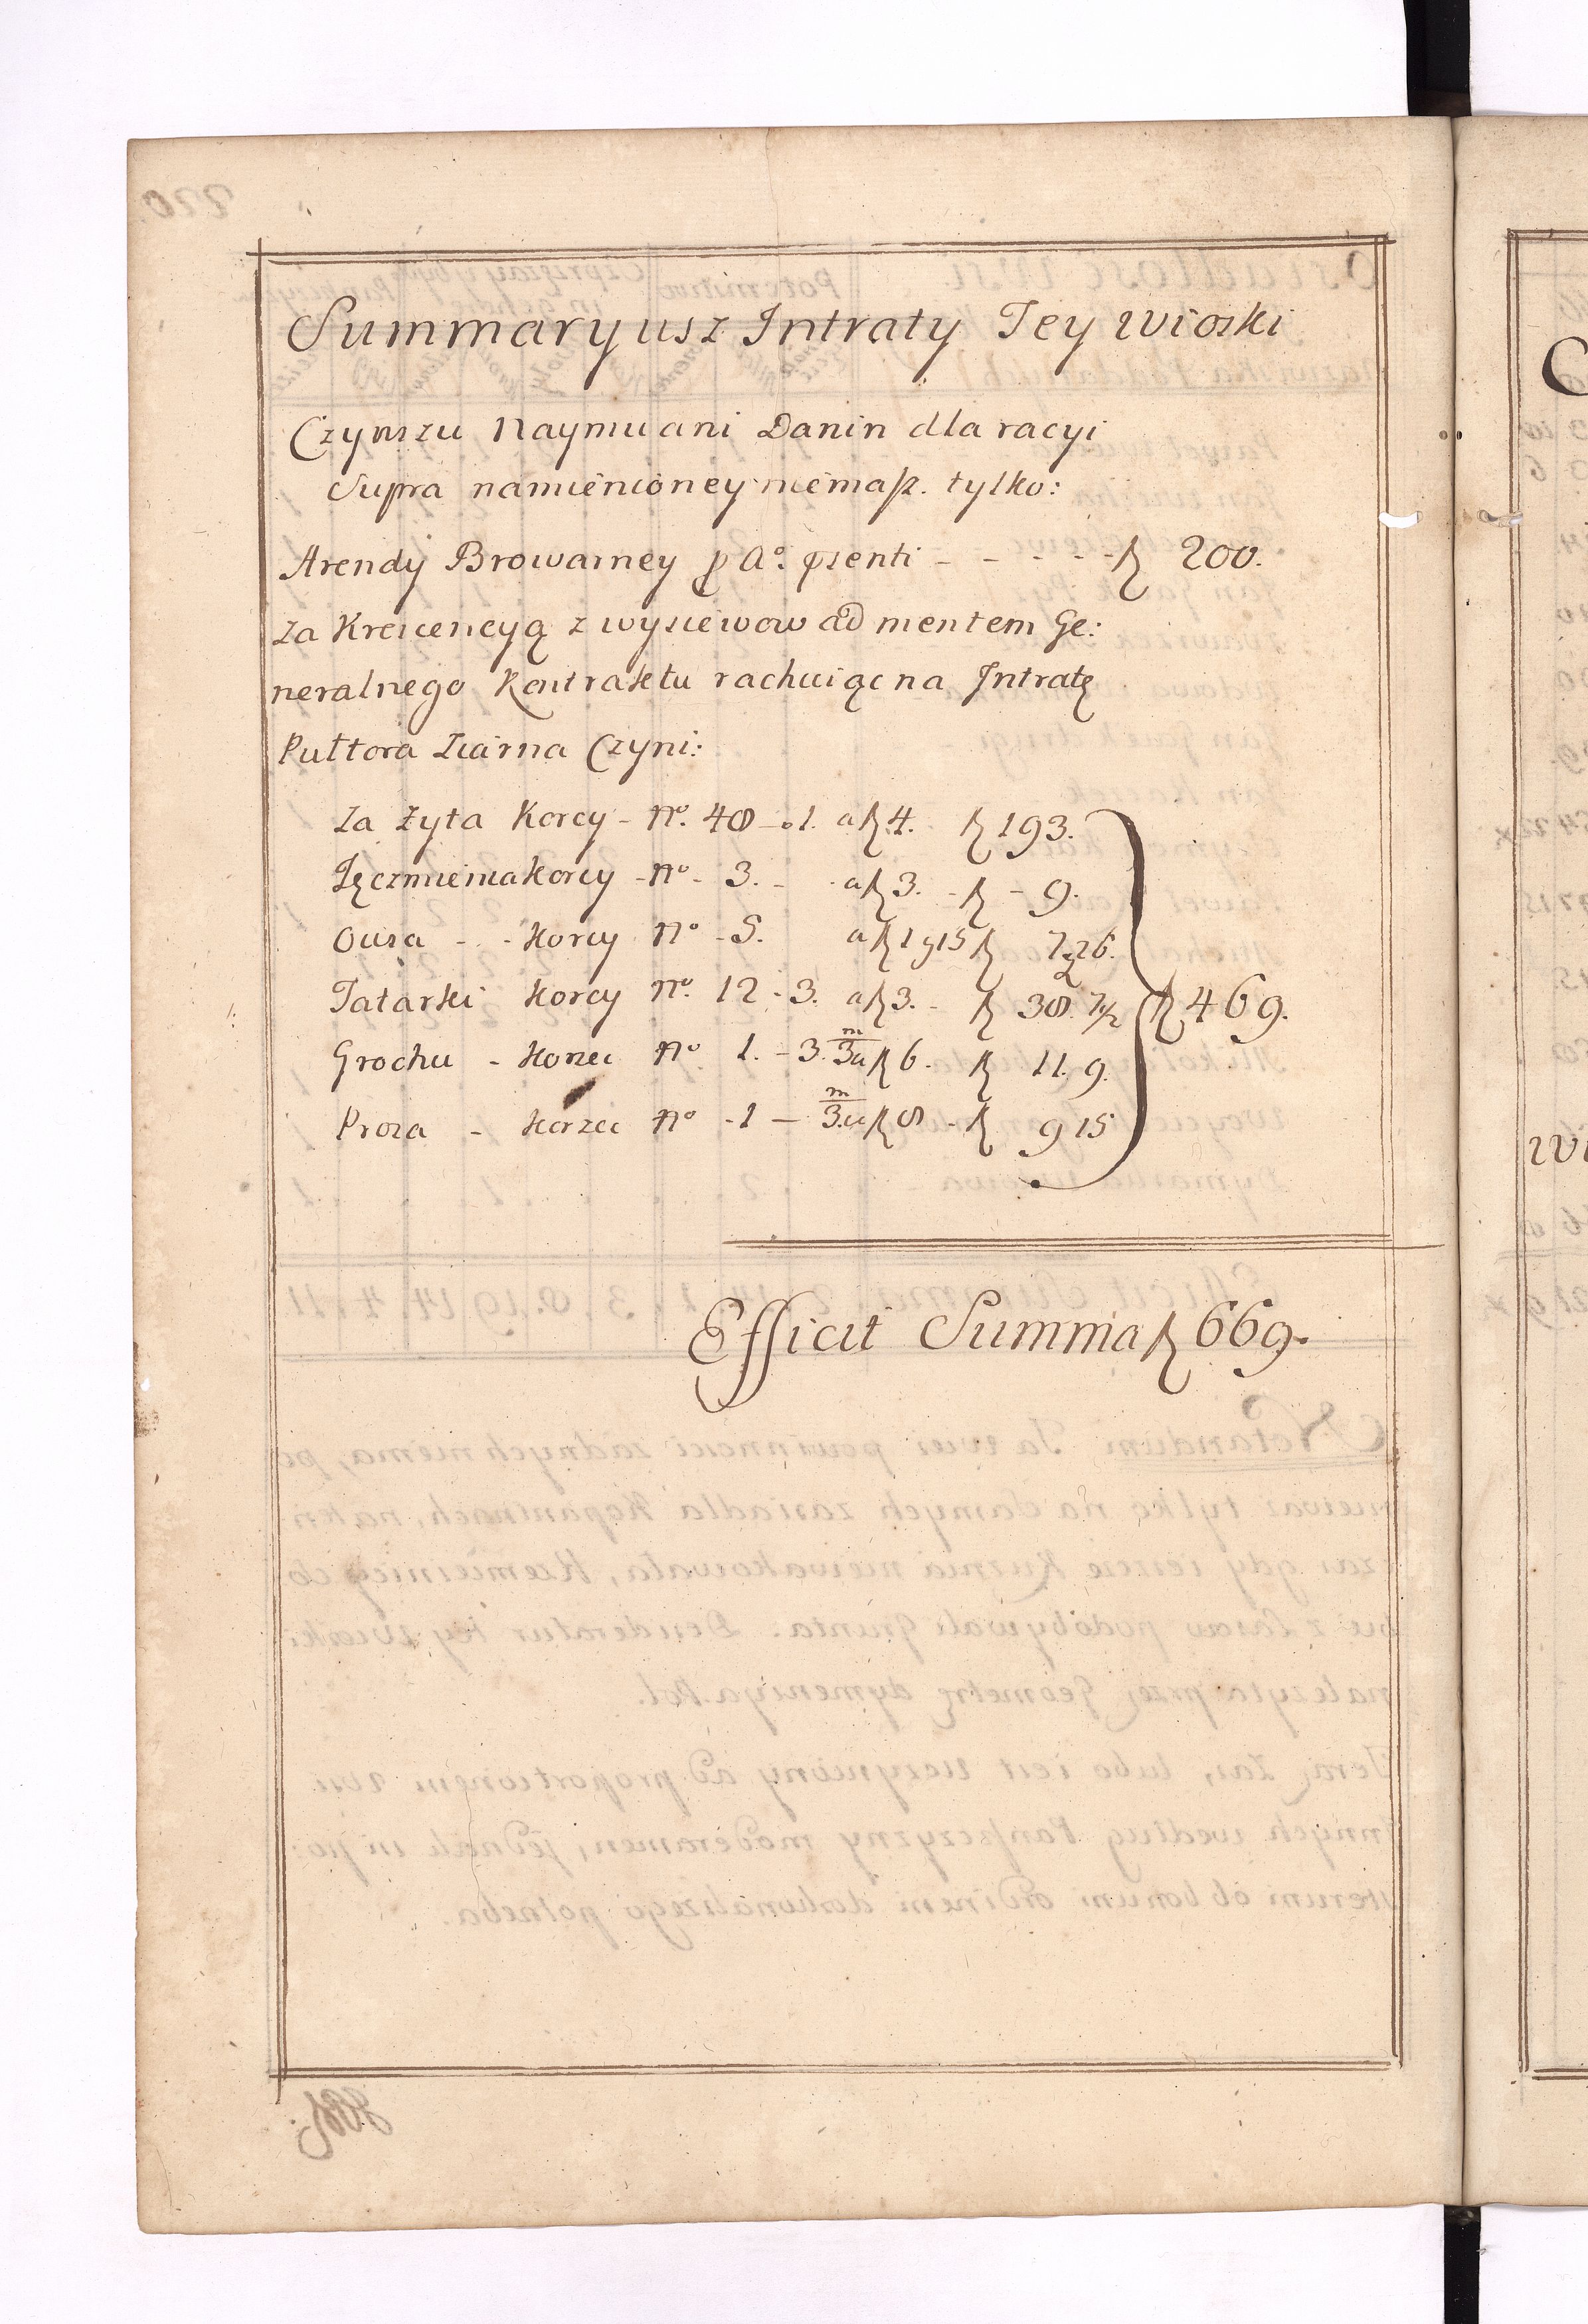 Summaryusz Intraty Tey Wioski
Czynszu Naymu ani Danin dla racyi
Supra namienioney niemasz. tylko:
Arendy Browarney p Aº. psenti - - - - - zł 200.
Za Krescencyą z wysiewow ad mentem Ge:
neralnego Kontraktu rachuiąc na Intratę
Pułtora Ziarna Czyni:
Za Żyta Korcy - Nº. 48 - 1. a zł 4. zł 193.
Jęczmienia Korcy - Nº - 3. - a zł 3. - zł - 9.
Owsa - - Korcy Nº - 5. a zł 1 g 15 zł 7 26.
Tatarki Korcy Nº. 12 - 3. a zł 3. - zł 38. 7½ zł 469.
Grochu - Korzec Nº 1. - 3. m/3 a zł 6. zł 11. 9.
Prosa - Korzec Nº - 1 - m/3. a zł 8 - zł 9 15
Efficit Summa zł 669.